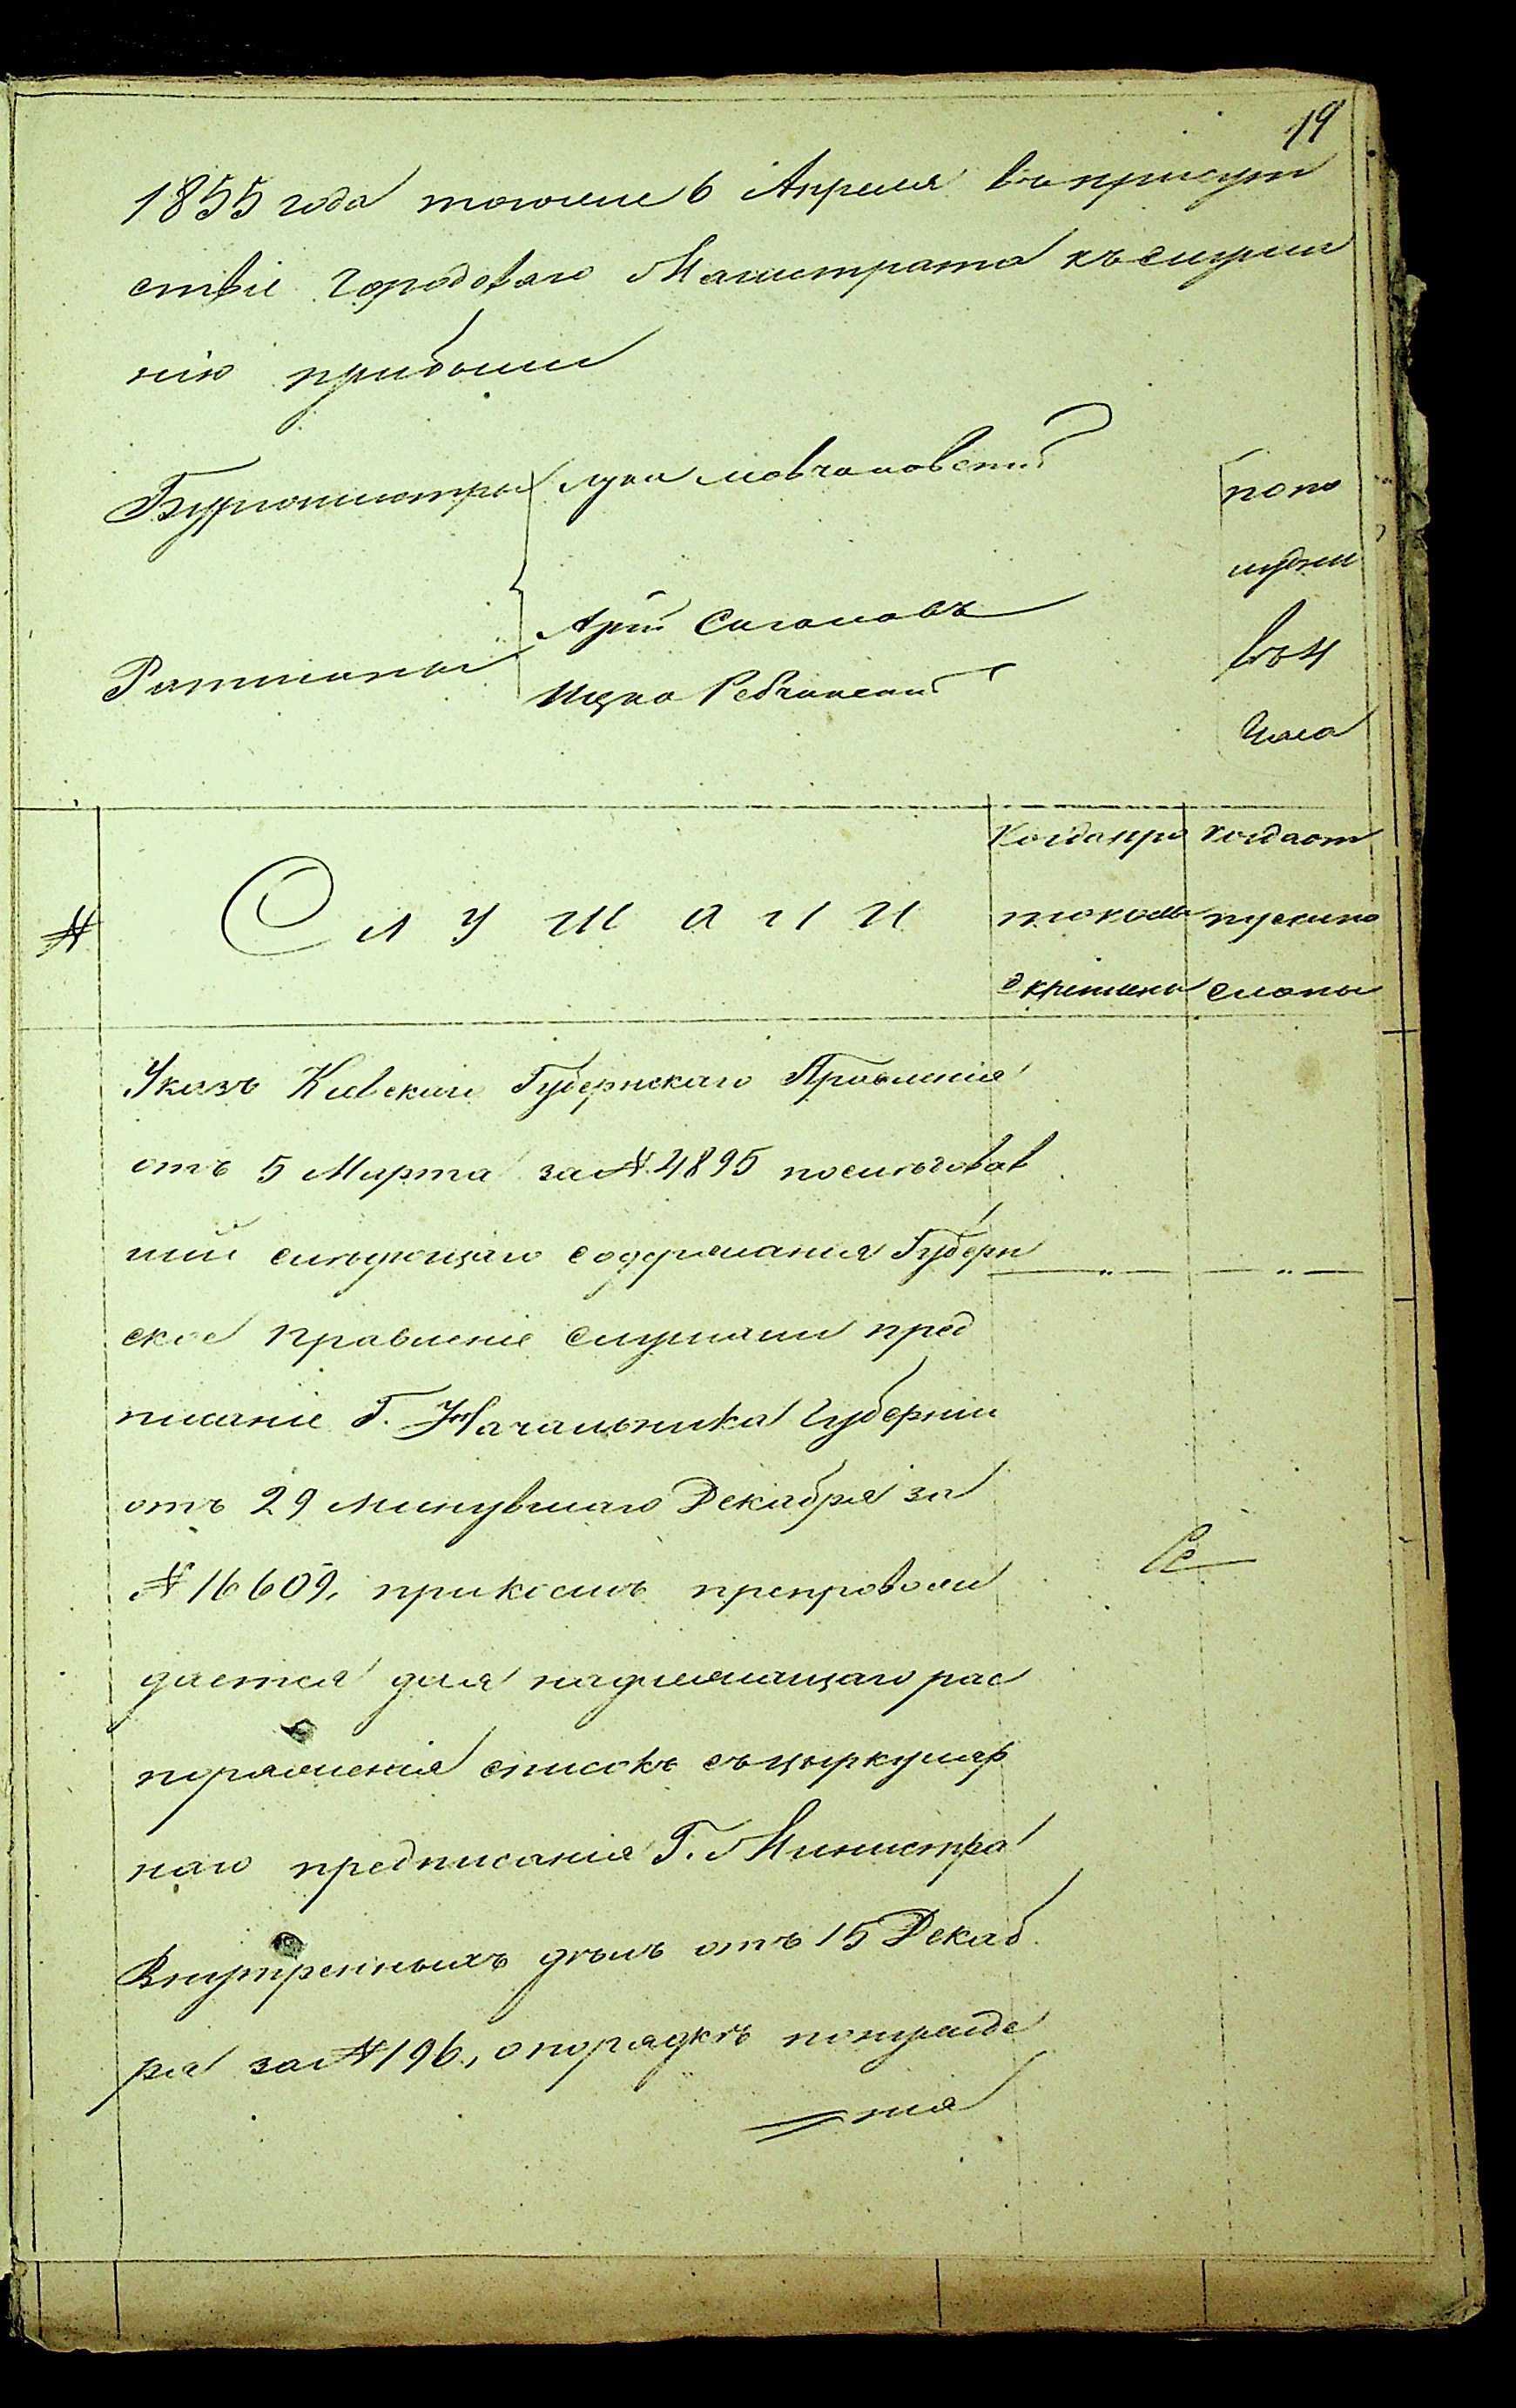 19
1855 года тогоже 6 Апреля въ присут
ствіе Городоваго Магистрата къ слуша
нію прибыли
Бургомистры Лука Мовчановскій
попо
лудни
Арій Сагановъ
въ 4
Ратманы
Ицко Ребчинскій
Часа
№
Слушали
Когда про
токолы
скреплены
Когда от
пускино
сланы
Указъ Кіевскаго Губернскаго Правленія
отъ 5 Марта за № 4895 послѣдовав
шій слѣдующаго содержанія Губерн
ское Правленіе слушали пред
писаніе Г. Начальника Губерніи
отъ 29 минувшаго Декабря за
№ 16609, при коемъ препровож
дается для надлежащаго рас
поряженія списокъ съ циркуляр
наго предписанія Г. Министра
Внутренныхъ дѣлъ отъ 15 Декаб
ря за № 196, о порядкѣ
нія